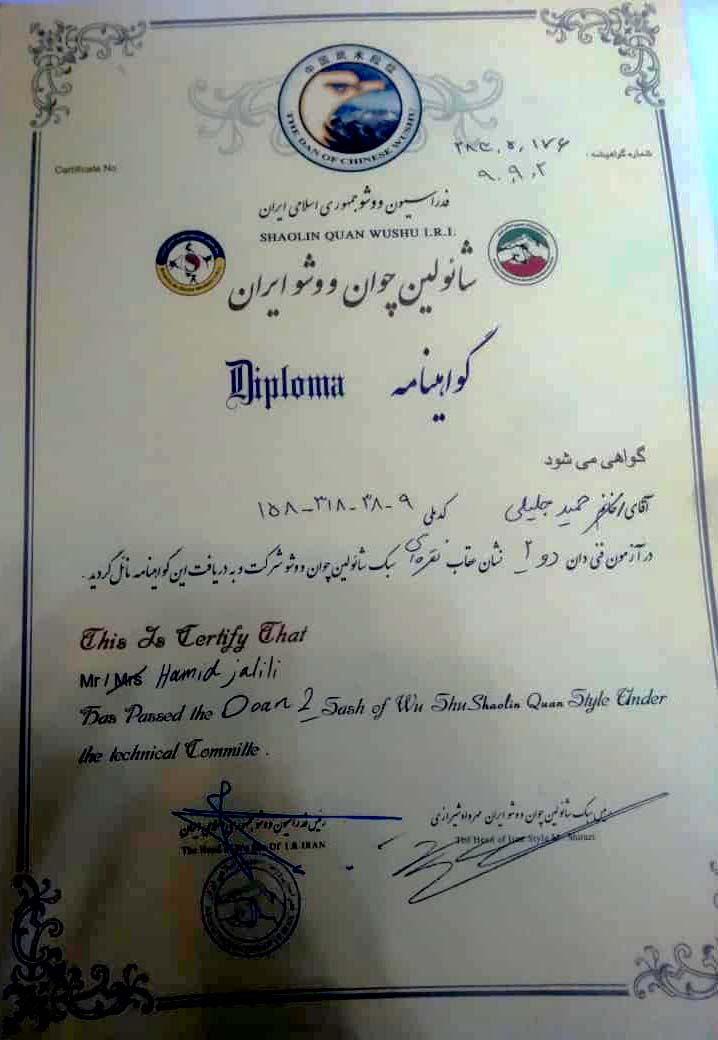 中国武术段位
THE DAN OF CHINESE WUSHU
Certificate No
شماره گواهینامه :
۹.۹.۲
فدراسیون ووشو جمهوری اسلامی ایران
SHAOLIN QUAN WUSHU I.R.I.
شائولین چوان ووشو ایران
Diploma گواهینامه
گواهی می شود
آقای/خانم حمید جلیلی کدملی ۱۵۸-۳۱۸-۳۸-۹
در آزمون فنی دان دو ۲ نشان عقاب نقره ای سبک شائولین چوان ووشو شرکت و به دریافت این گواهینامه نائل گردید .
This Is Certify That
Mr / Mrs Hamid jalili
Has Passed the Doan 2 Sash of Wu Shu Shaolin Quan Style Under
the technical Committe .
رئیس فدراسیون ووشو جمهوری اسلامی ایران
The Head OF I.R.IRAN
رئیس سبک شائولین چوان ووشو ایران مهرداد شیرازی
The Head of Iran Style M. Shirazi